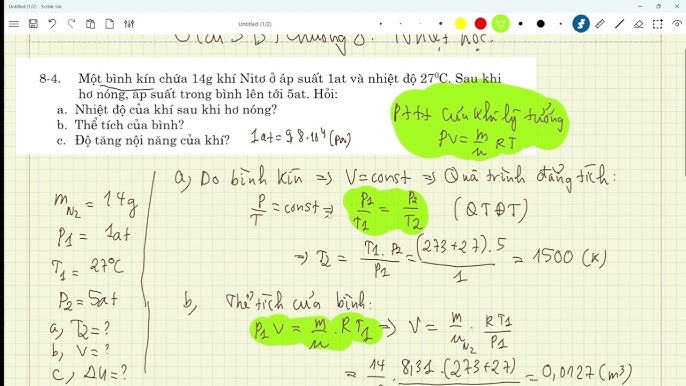 Untitled (1/2) - Scrible Ink
Untitled (1/2)
Chương 8: Nhiệt học.
8-4. Một bình kín chứa 14g khí Nitơ ở áp suất 1at và nhiệt độ 27⁰C. Sau khi
hơ nóng, áp suất trong bình lên tới 5at. Hỏi:
a. Nhiệt độ của khí sau khi hơ nóng?
b. Thể tích của bình?
c. Độ tăng nội năng của khí?
1at = 9,8·10⁴ (Pa)
Pttt của khí lý tưởng
PV = m/μ RT
m_N₂ = 14g
P₁ = 1at
T₁ = 27°C
P₂ = 5at
a, T₂ = ?
b, V = ?
c, ΔU = ?
a) Do bình kín => V = const => Quá trình đẳng tích:
P/T = const => P₁/T₁ = P₂/T₂ (QTĐT)
=> T₂ = T₁.P₂/P₁ = (273+27).5/1 = 1500 (K)
b, Thể tích của bình:
P₁V = m/μ . RT₁ => V = m/μ_N₂ . RT₁/P₁
= 14 . 8,31.(273+27) = 0,0127 (m³)